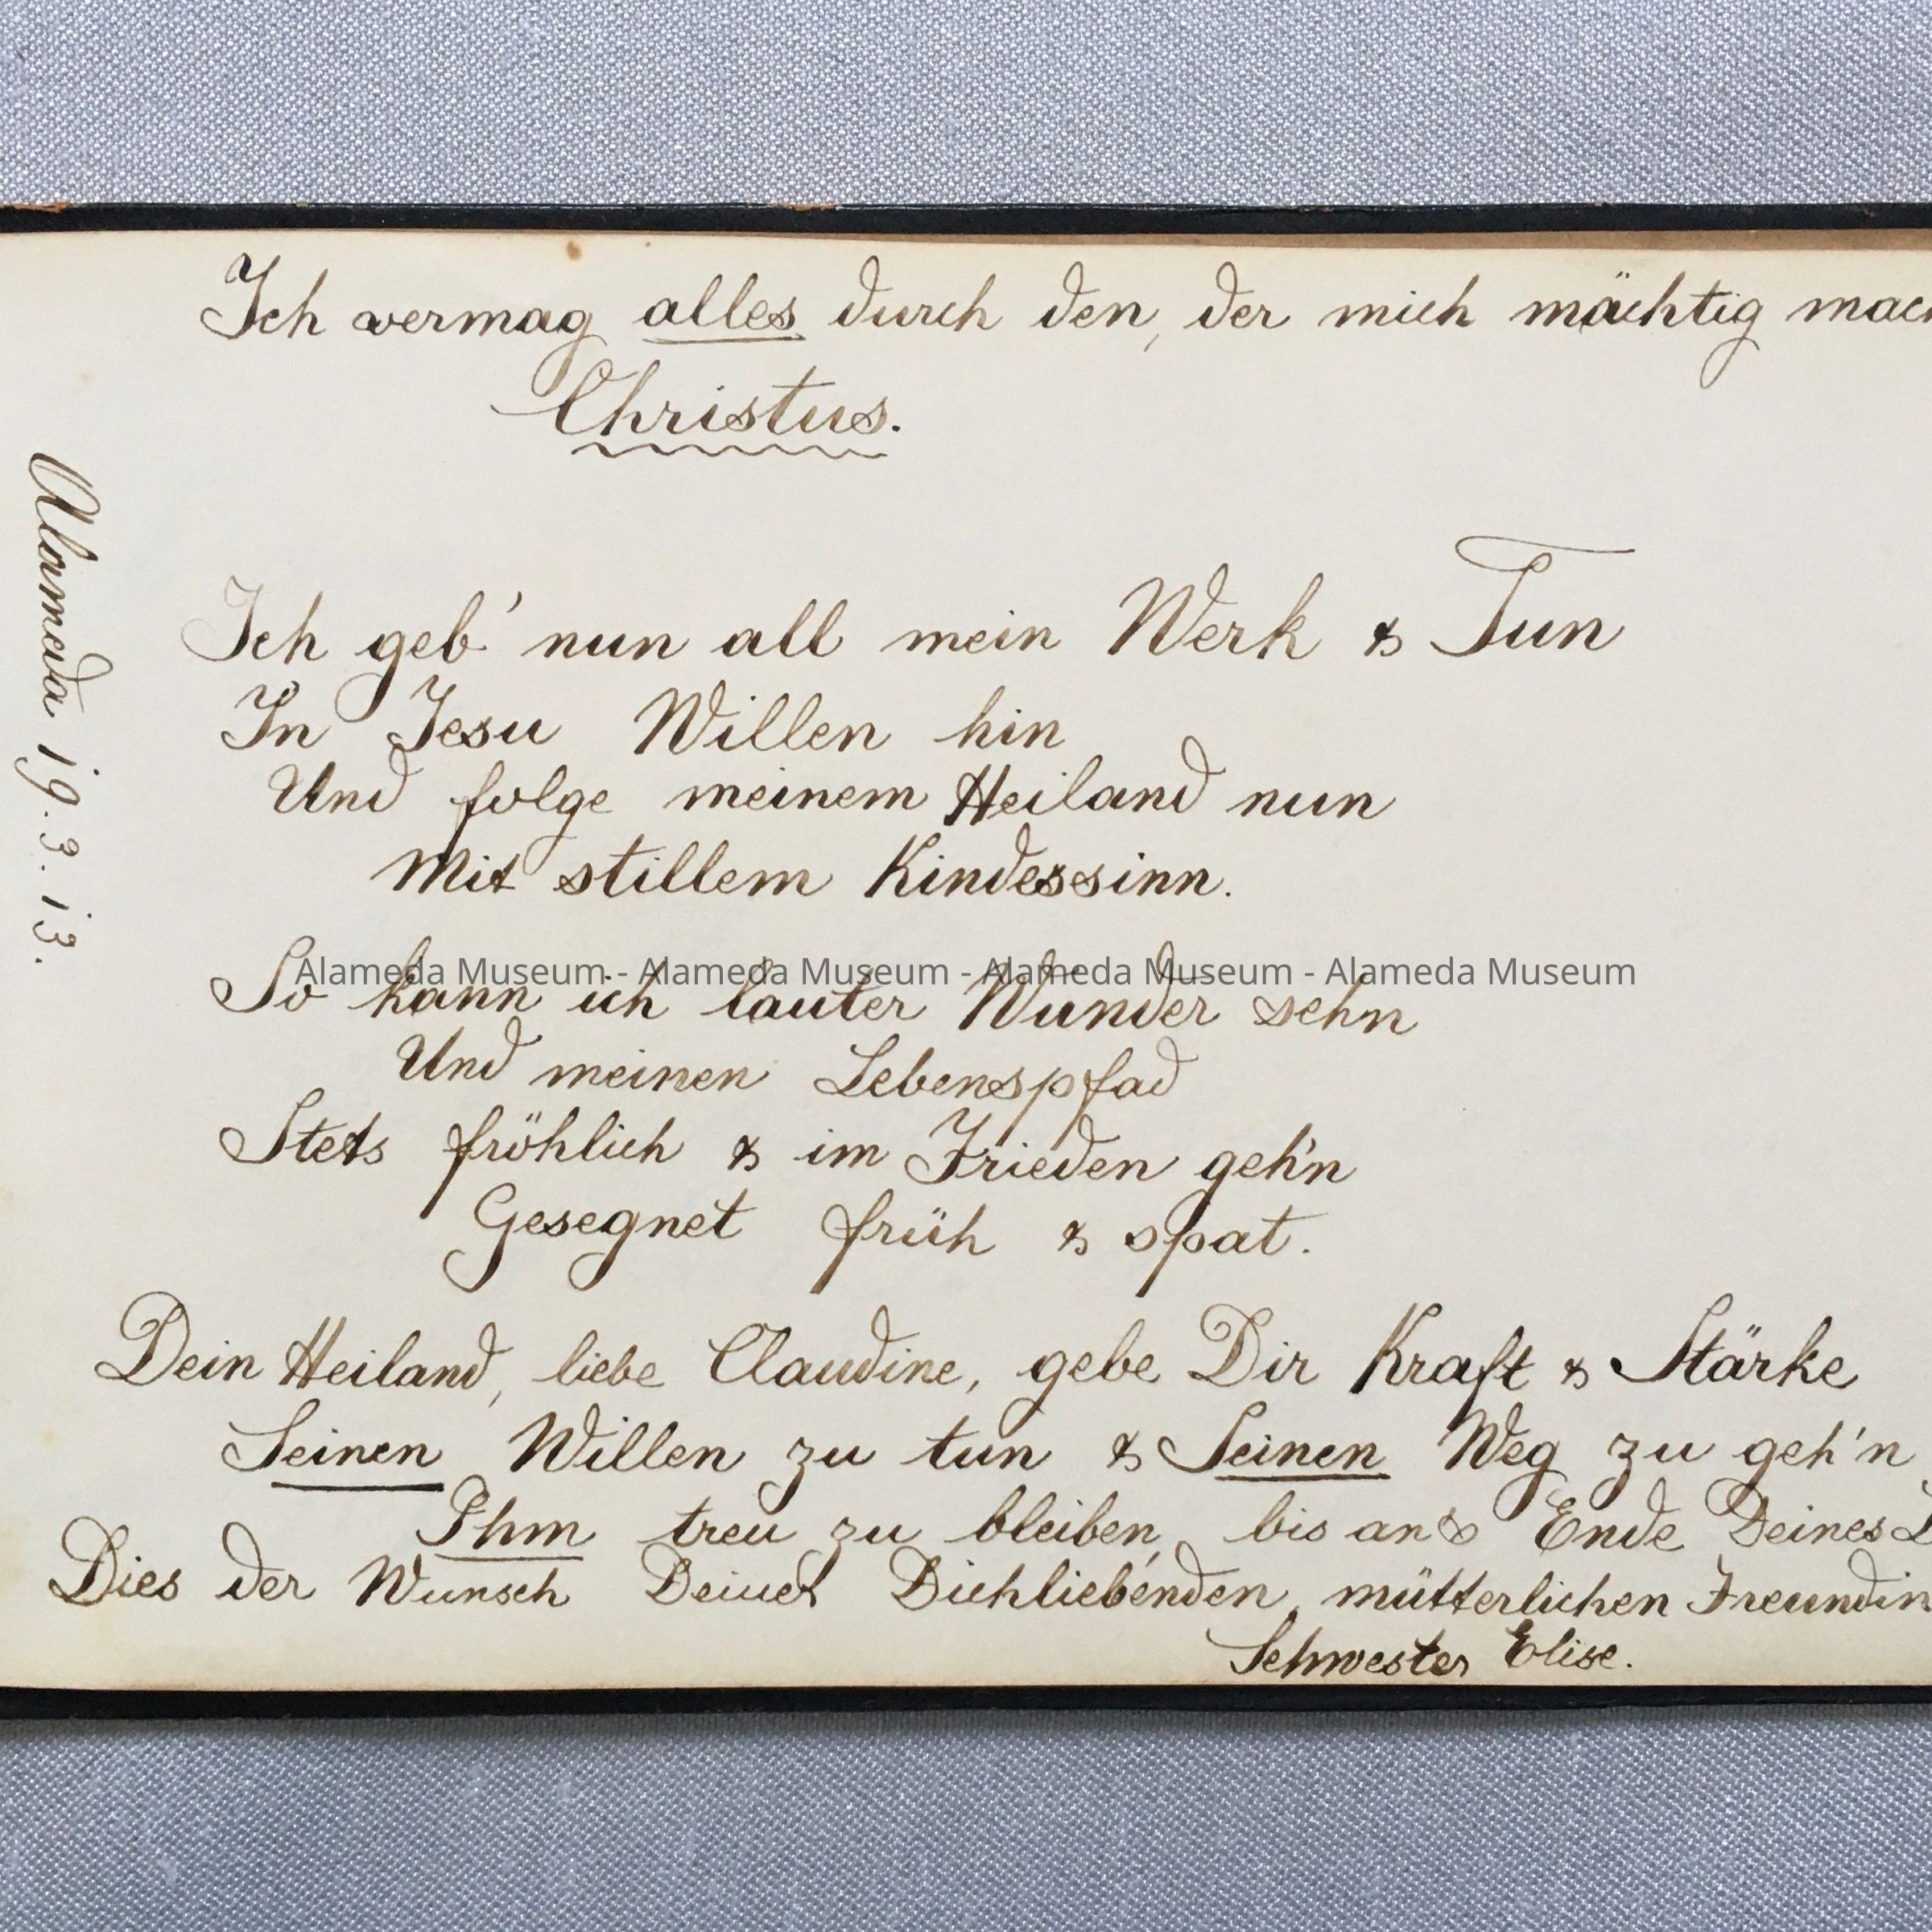 Ich vermag alles durch den, der mich mächtig mach
Christus.
Alameda 19.3.13.
Ich geb' nun all mein Werk & Tun
In Jesu Willen hin
Und folge meinem Heiland nun
Mit stillem Kindessinn.
Alameda Museum - Alameda Museum - Alameda Museum - Alameda Museum
So kann ich lauter Wunder sehn
Und meinen Lebenspfad
Stets fröhlich & im Frieden geh'n
Gesegnet früh & spat.
Dein Heiland, liebe Claudine, gebe Dir Kraft & Stärke
Seinen Willen zu tun & Seinen Weg zu geh'n
Ihm treu zu bleiben, bis ans Ende Deines
Dies der Wunsch Deiner Dichliebenden mütterlichen Freundin
Schwester Elise.